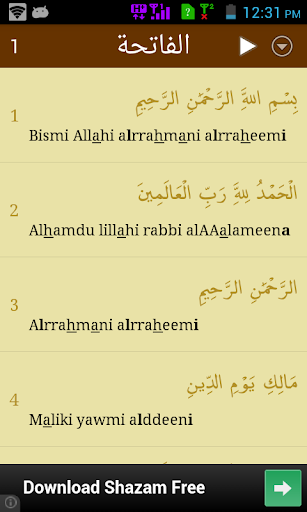 12:31 PM
1 الفاتحة
1
بِسْمِ اللَّهِ الرَّحْمَٰنِ الرَّحِيمِ
Bismi Allahi alrrahmani alrraheemi
2
الْحَمْدُ لِلَّهِ رَبِّ الْعَالَمِينَ
Alhamdu lillahi rabbi alAAalameena
3
الرَّحْمَٰنِ الرَّحِيمِ
Alrrahmani alrraheemi
4
مَالِكِ يَوْمِ الدِّينِ
Maliki yawmi alddeeni
Download Shazam Free